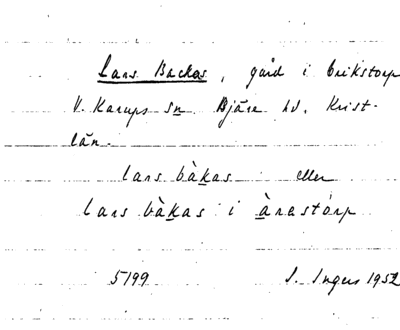 Lars Backas, gård i Erikstorp
V. Karups sn Bjäre hd. Krist-
län.
lars bàkas eller
lars bàkas i àrastorp
5199 I. Ingers 1952